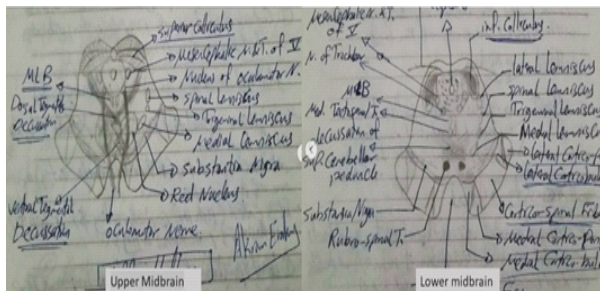 superior colliculus
Mesencephalic N.&T. of V
Nucleus of oculomotor N.
Spinal Lemniscus
Trigeminal Lemniscus
Medial Lemniscus
Substantia Nigra
Red Nucleus
MLB
Dorsal Tegmental
Decussation
Ventral Tegmental
Decussation
oculomotor Nerve.
Upper Midbrain
Mesencephalic N.&T.
of V
N. of Trochlear
MLB
Med. Tectospinal T.
decussation of
sup. Cerebellar
peduncle
Substantia Nigra
Rubro-spinal T.
inf. Colliculus
lateral Lemniscus
spinal Lemniscus
Trigeminal Lemniscus
Medial Lemniscus
Lateral
Lateral
Cortico-spinal
Medial Cortico-
Medial Cortico-
Lower midbrain